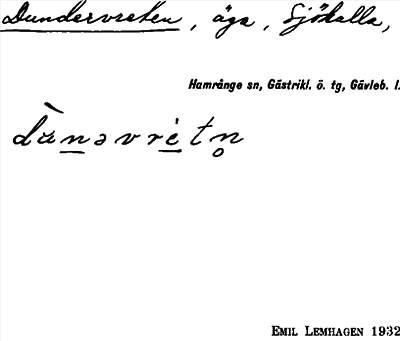 Dundervreten, äga, Sjökalla,
Hamrånge sn, Gästrikl. ö. tg, Gävleb. l.
dànəvrėtn̥
EMIL LEMHAGEN 1932